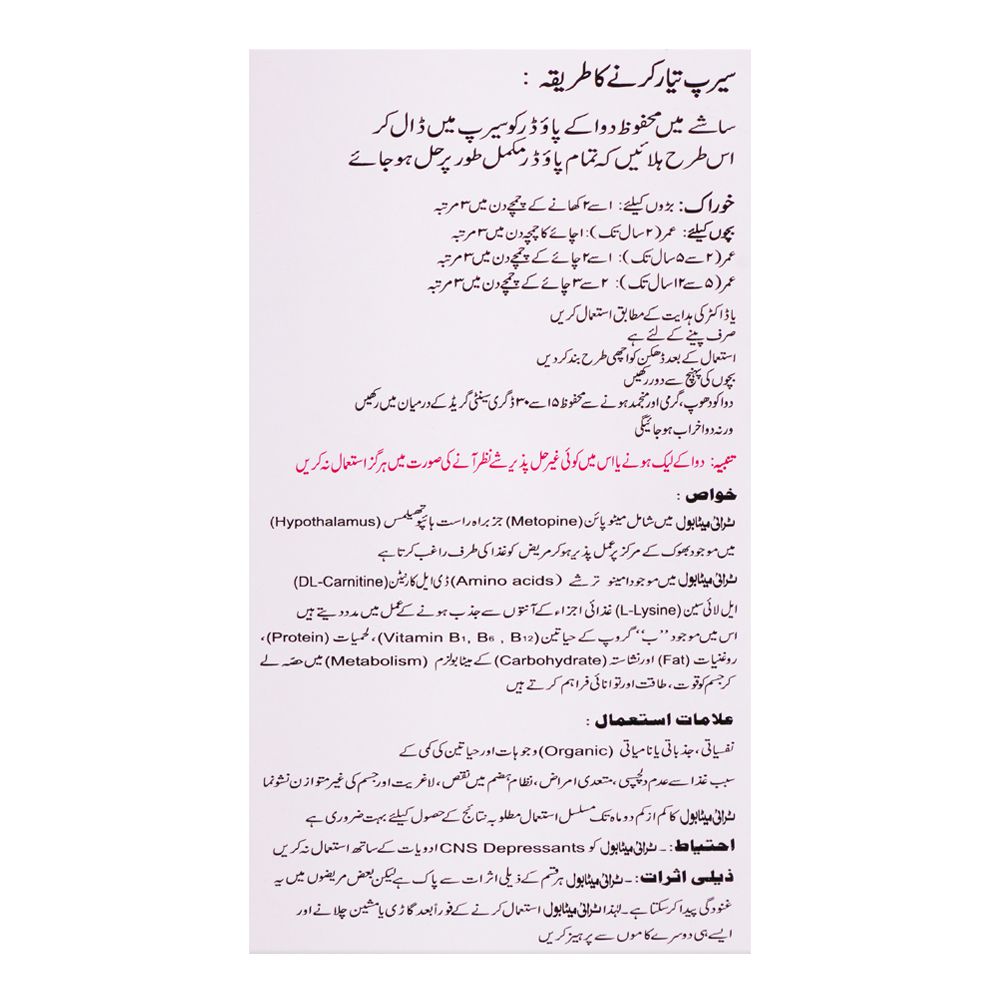 سیرپ تیار کرنے کا طریقہ :
ساشے میں محفوظ دوا کے پاؤڈر کو سیرپ میں ڈال کر
اس طرح ہلائیں کہ تمام پاؤڈر مکمل طور پر حل ہو جائے
خوراک: بڑوں کیلئے: ۱ سے ۲ کھانے کے چمچے دن میں ۳ مرتبہ
بچوں کیلئے: عمر (۲ سال تک): ۱ چائے کا چمچہ دن میں ۳ مرتبہ
عمر (۲ سے ۵ سال تک): ۱ سے ۲ چائے کے چمچے دن میں ۳ مرتبہ
عمر (۵ سے ۱۲ سال تک): ۲ سے ۳ چائے کے چمچے دن میں ۳ مرتبہ
یا ڈاکٹر کی ہدایت کے مطابق استعمال کریں
صرف پینے کے لئے ہے
استعمال کے بعد ڈھکن کو اچھی طرح بند کر دیں
بچوں کی پہنچ سے دور رکھیں
دوا کو دھوپ، گرمی اور منجمد ہونے سے محفوظ ۱۵ سے ۳۰ ڈگری سینٹی گریڈ کے درمیان میں رکھیں
ورنہ دوا خراب ہو جائیگی
تنبیہ: دوا کے لیک ہونے یا اس میں کوئی غیر حل پذیر شے نظر آنے کی صورت میں ہرگز استعمال نہ کریں
خواص :
ٹرائی میٹابول میں شامل میٹوپائن (Metopine) جز براہ راست ہائپوتھیلمس (Hypothalamus)
میں موجود بھوک کے مرکز پر عمل پذیر ہو کر مریض کو غذا کی طرف راغب کرتا ہے
ٹرائی میٹابول میں موجود امینو ترشے (Amino acids) ڈی ایل کارنیٹن (DL-Carnitine)
ایل لائی سین (L-Lysine) غذائی اجزاء کے آنتوں سے جذب ہونے کے عمل میں مدد دیتے ہیں
اس میں موجود ”ب“ گروپ کے حیاتین (Vitamin B1, B6 , B12)، لحمیات (Protein)،
روغنیات (Fat) اور نشاستہ (Carbohydrate) کے میٹابولزم (Metabolism) میں حصّہ لے
کر جسم کو قوت، طاقت اور توانائی فراہم کرتے ہیں
علامات استعمال :
نفسیاتی، جذباتی یا نامیاتی (Organic) وجوہات اور حیاتین کی کمی کے
سبب غذا سے عدم دلچسپی، متعدی امراض، نظام ہضم میں نقص، لاغریت اور جسم کی غیر متوازن نشونما
ٹرائی میٹابول کا کم از کم دو ماہ تک مسلسل استعمال مطلوبہ نتائج کے حصول کیلئے بہت ضروری ہے
احتیاط :۔ ٹرائی میٹابول کو CNS Depressants ادویات کے ساتھ استعمال نہ کریں
ذیلی اثرات :۔ ٹرائی میٹابول ہر قسم کے ذیلی اثرات سے پاک ہے لیکن بعض مریضوں میں یہ
غنودگی پیدا کر سکتا ہے۔ لہٰذا ٹرائی میٹابول استعمال کرنے کے فوراً بعد گاڑی یا مشین چلانے اور
ایسے ہی دوسرے کاموں سے پرہیز کریں